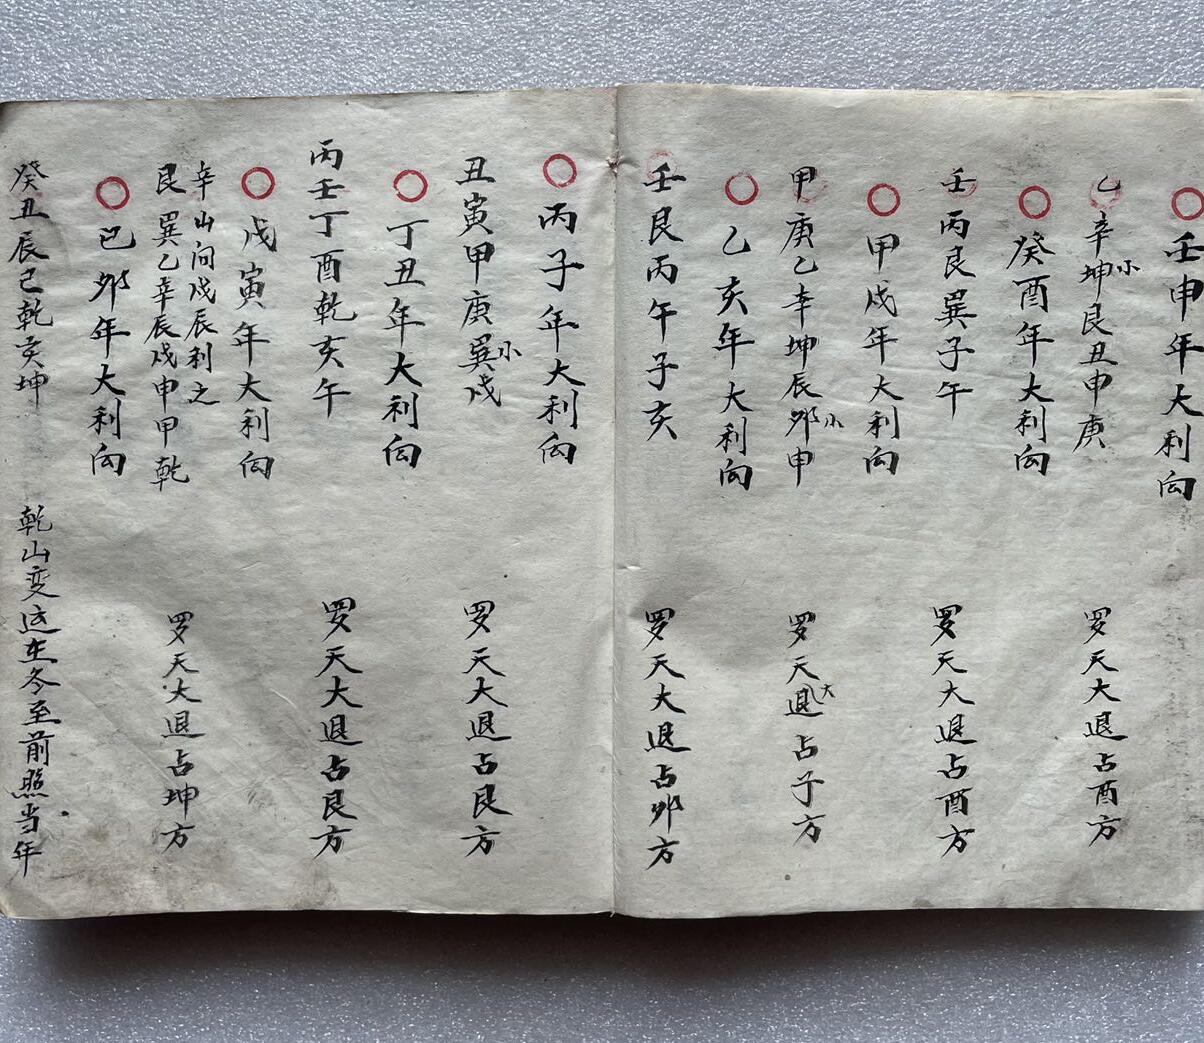 壬申年大利向
乙辛坤小艮丑申庚
罗天大退占酉方
癸酉年大利向
壬丙艮巽子午
罗天大退占酉方
甲戌年大利向
甲庚乙辛坤辰卯小申
罗天大退占子方
乙亥年大利向
壬艮丙午子亥
罗天大退占卯方
丙子年大利向
丑寅甲庚巽小戌
罗天大退占艮方
丁丑年大利向
丙壬丁酉乾亥午
罗天大退占艮方
戊寅年大利向
辛山向戊辰利之
艮巽乙辛辰戌申甲乾
罗天大退占坤方
己卯年大利向
癸丑辰巳乾亥坤
乾山变运在冬至前照当年